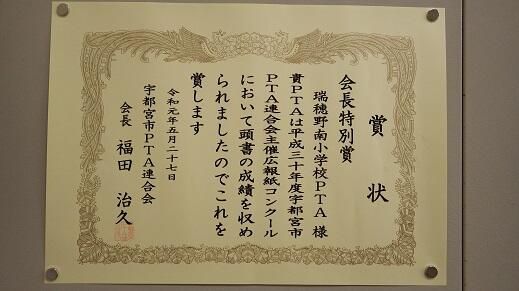 賞状
会長特別賞
瑞穂野南小学校PTA 様
貴PTAは平成三十年度宇都宮市
PTA連合会主催広報紙コンクール
において頭書の成績を収め
られましたのでこれを
賞します
令和元年五月二十七日
宇都宮市PTA連合会
会長 福田 治久